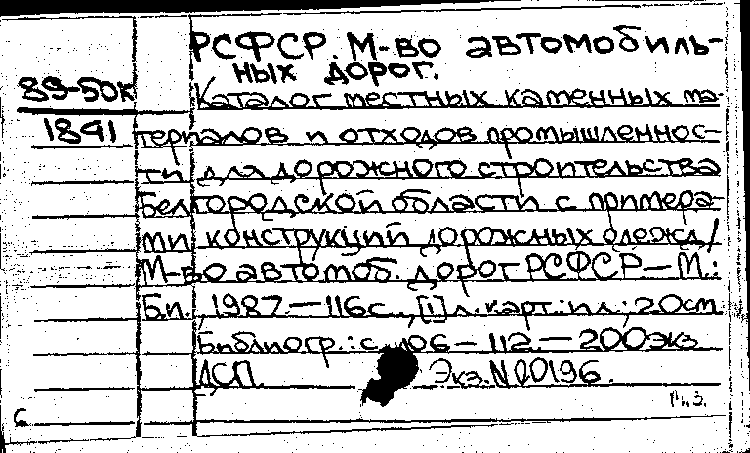 РСФСР. М-во автомобиль-
ных дорог.
89-50к
1841
Каталог местных каменных ма-
териалов и отходов промышленнос-
ти для дорожного строительства
Белгородской области с примера-
ми конструкций дорожных одежд /
М-во автомоб. дорог РСФСР — М.:
Б.и., 1987. — 116 с., [1] л. карт.: ил.; 20 см.
Библиогр.: с. 106-112. — 200 экз.
ДСП. Экз. N 00196.